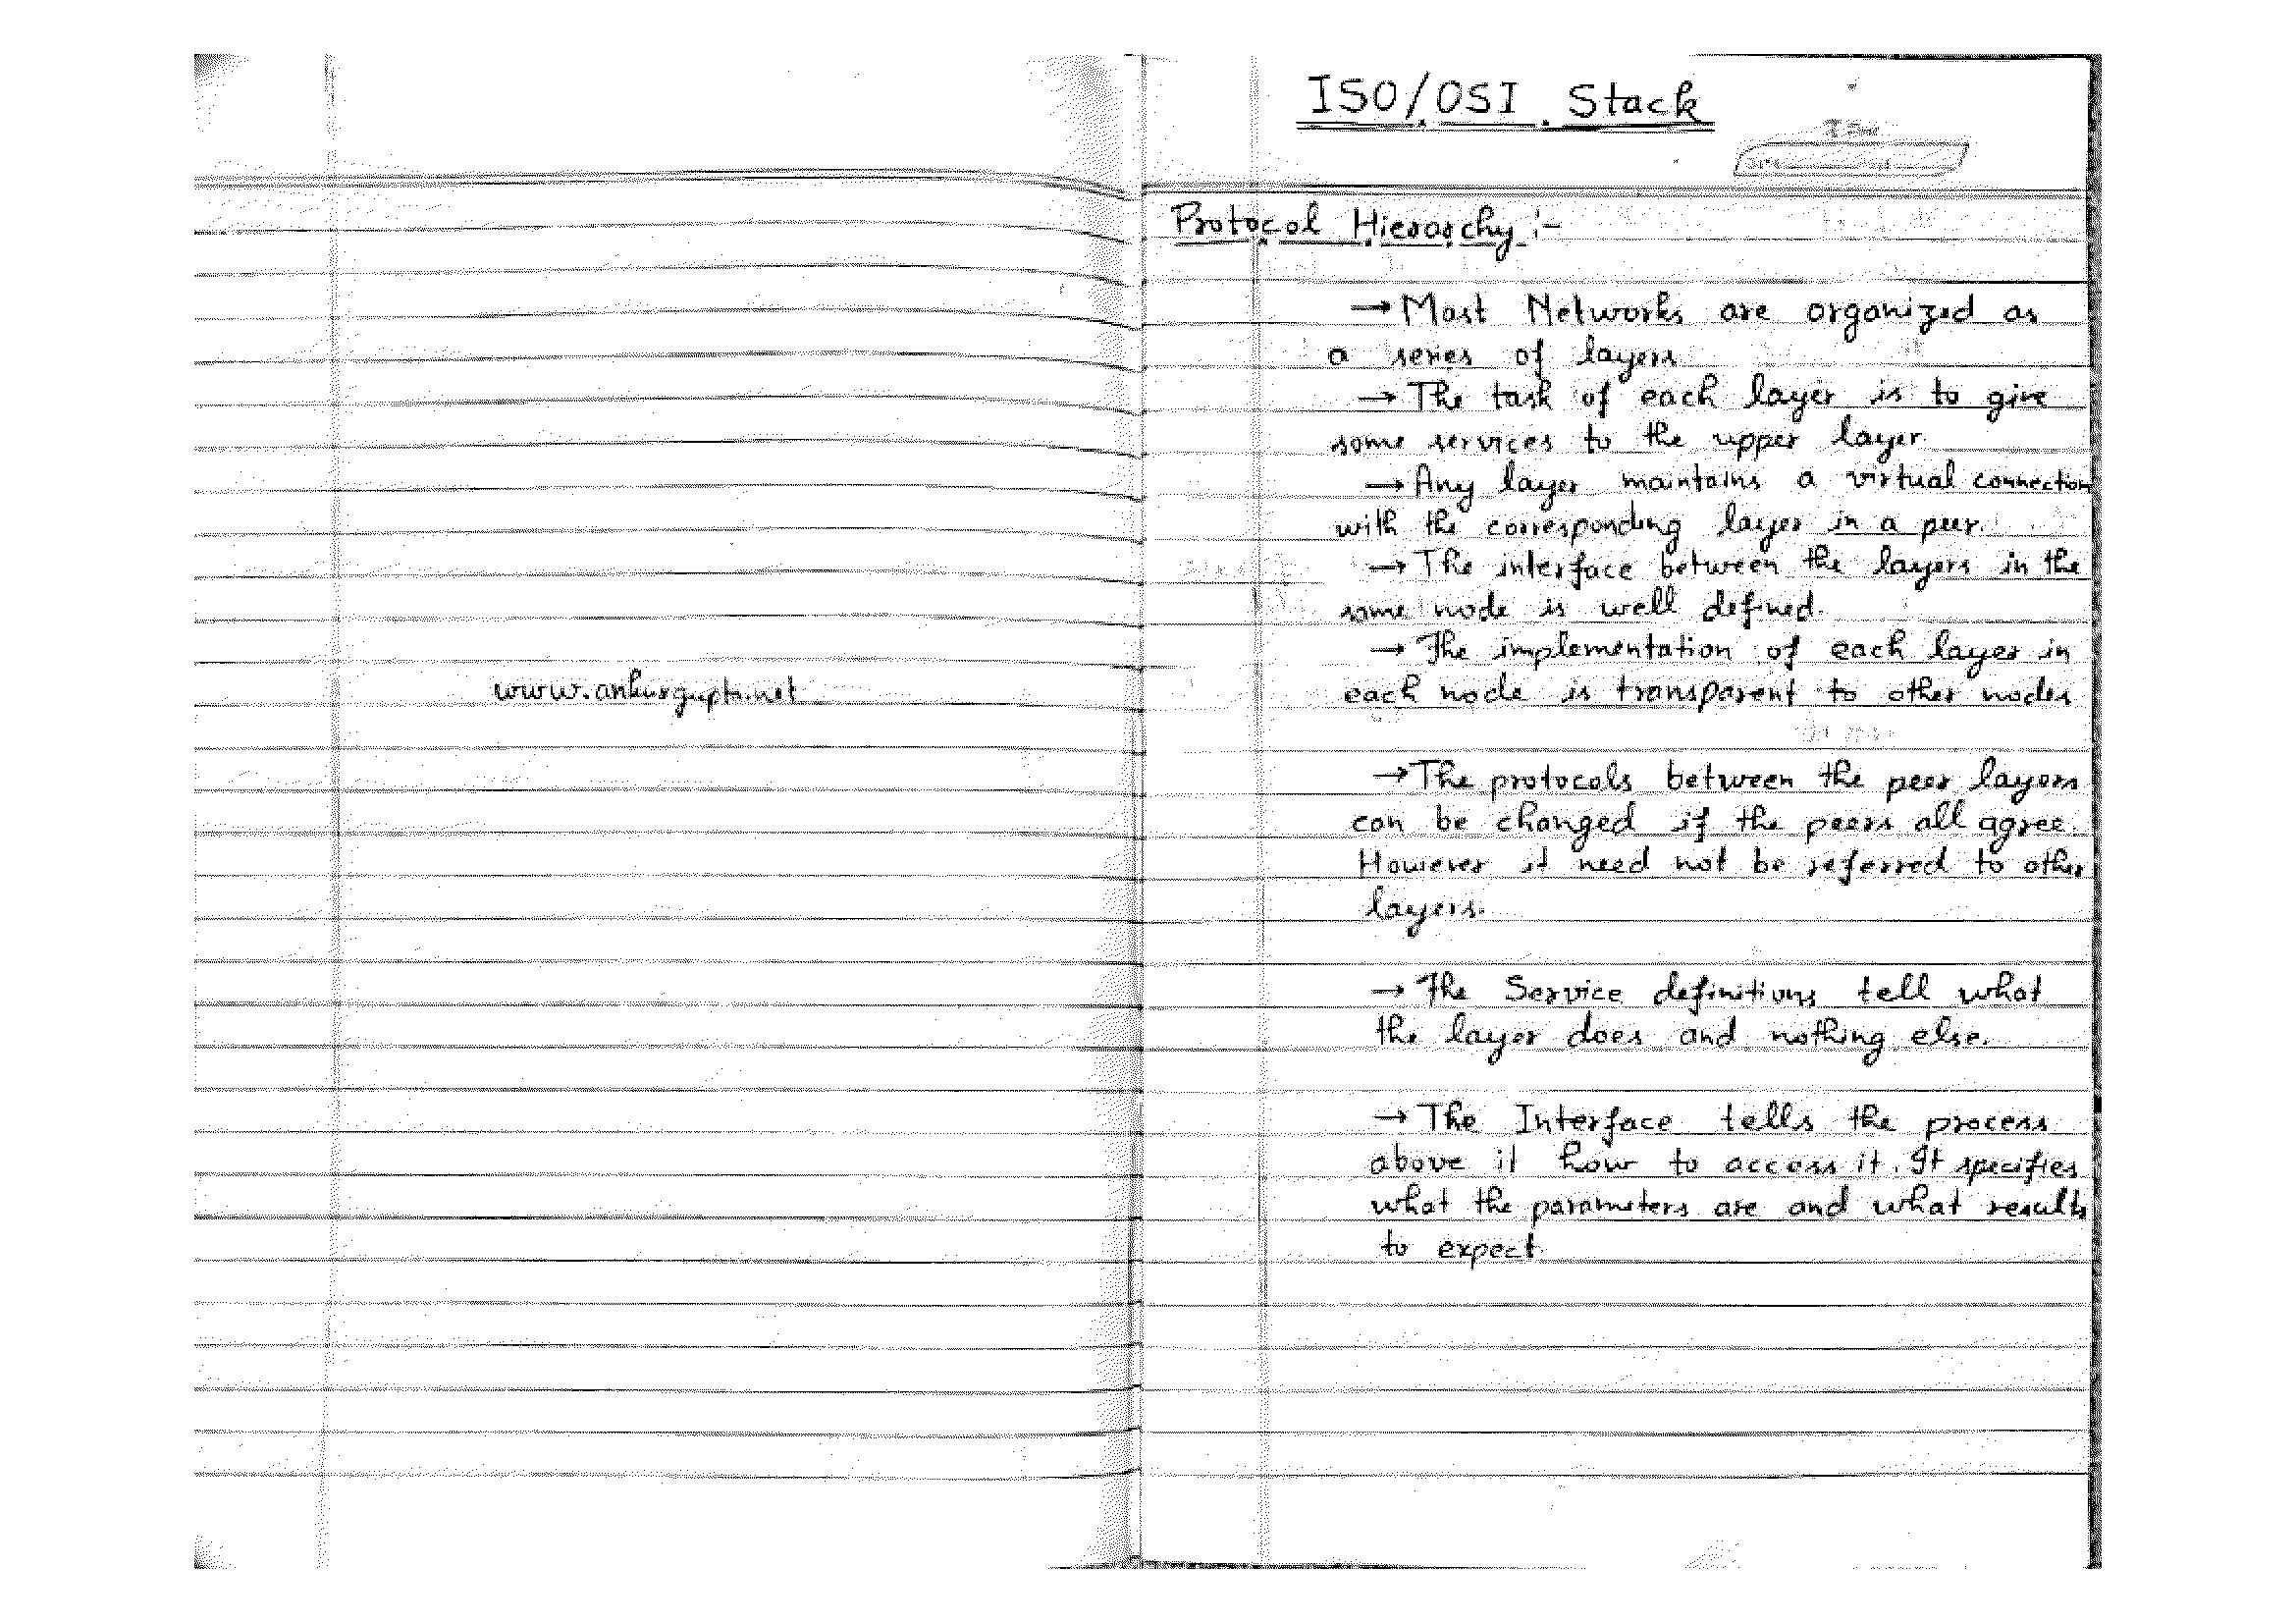 www.ankurgupta.net
ISO/OSI Stack
Protocol Hierarchy :-
→ Most Networks are organized as
a series of layers
→ The task of each layer is to give
some services to the upper layer.
→ Any layer maintains a virtual connection
with the corresponding layer in a peer.
→ The interface between the layers in the
same node is well defined.
→ The implementation of each layer in
each node is transparent to other nodes
→ The protocols between the peer layers
can be changed if the peers all agree.
However it need not be referred to other
layers.
→ The Service definitions tell what
the layer does and nothing else.
→ The Interface tells the process
above it how to access it. It specifies
what the parameters are and what results
to expect.